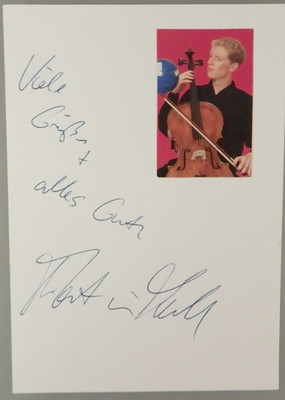 Viele
Grüße +
alles Gute